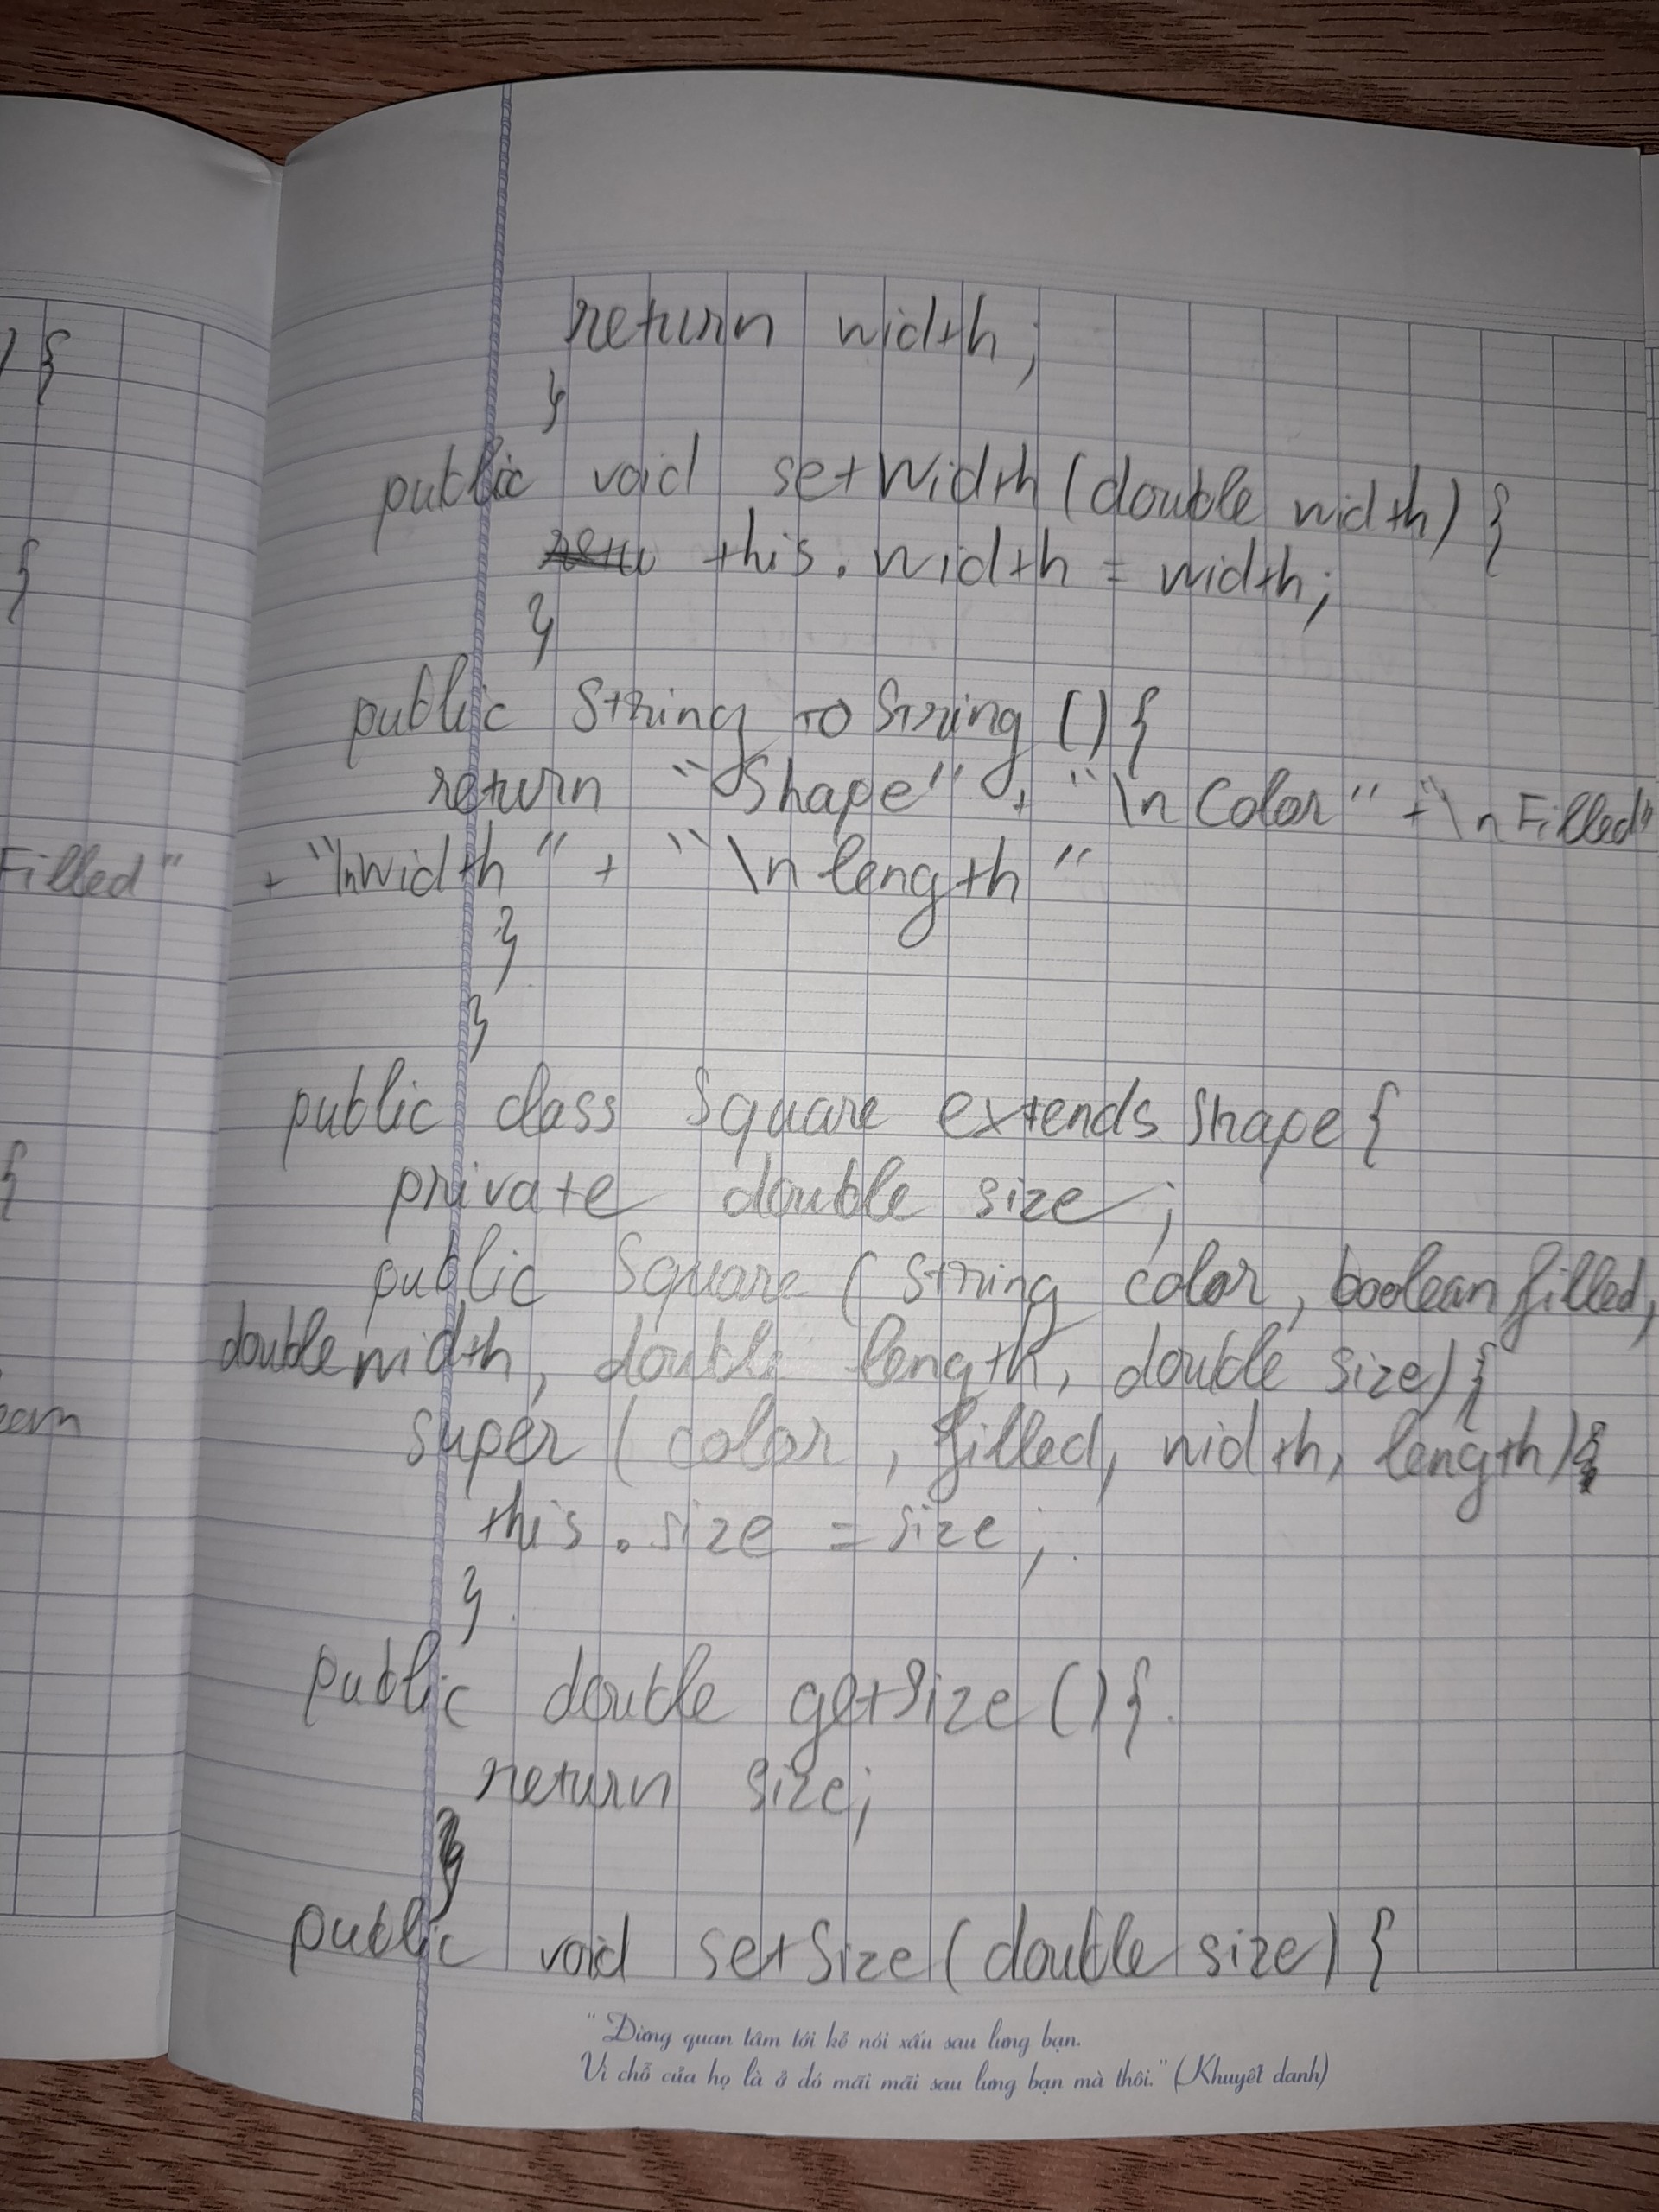 ) {
{
Filled"
{
return width;
}
public void setWidth(double width) {
this.width = width;
}
public String toString () {
return "Shape" + "\n Color" + "\n Filled"
+ "\nwidth" + "\n length"
}
}
public class Square extends Shape {
private double size;
public Square ( String color, boolean filled,
double width, double length, double size) {
super ( color, filled, width, length)
this.size = size;
}
public double getSize () {
return size;
}
public void setSize (double size) {
"Đừng quan tâm tới kẻ nói xấu sau lưng bạn.
Vì chỗ của họ là ở đó mãi mãi sau lưng bạn mà thôi." (Khuyết danh)